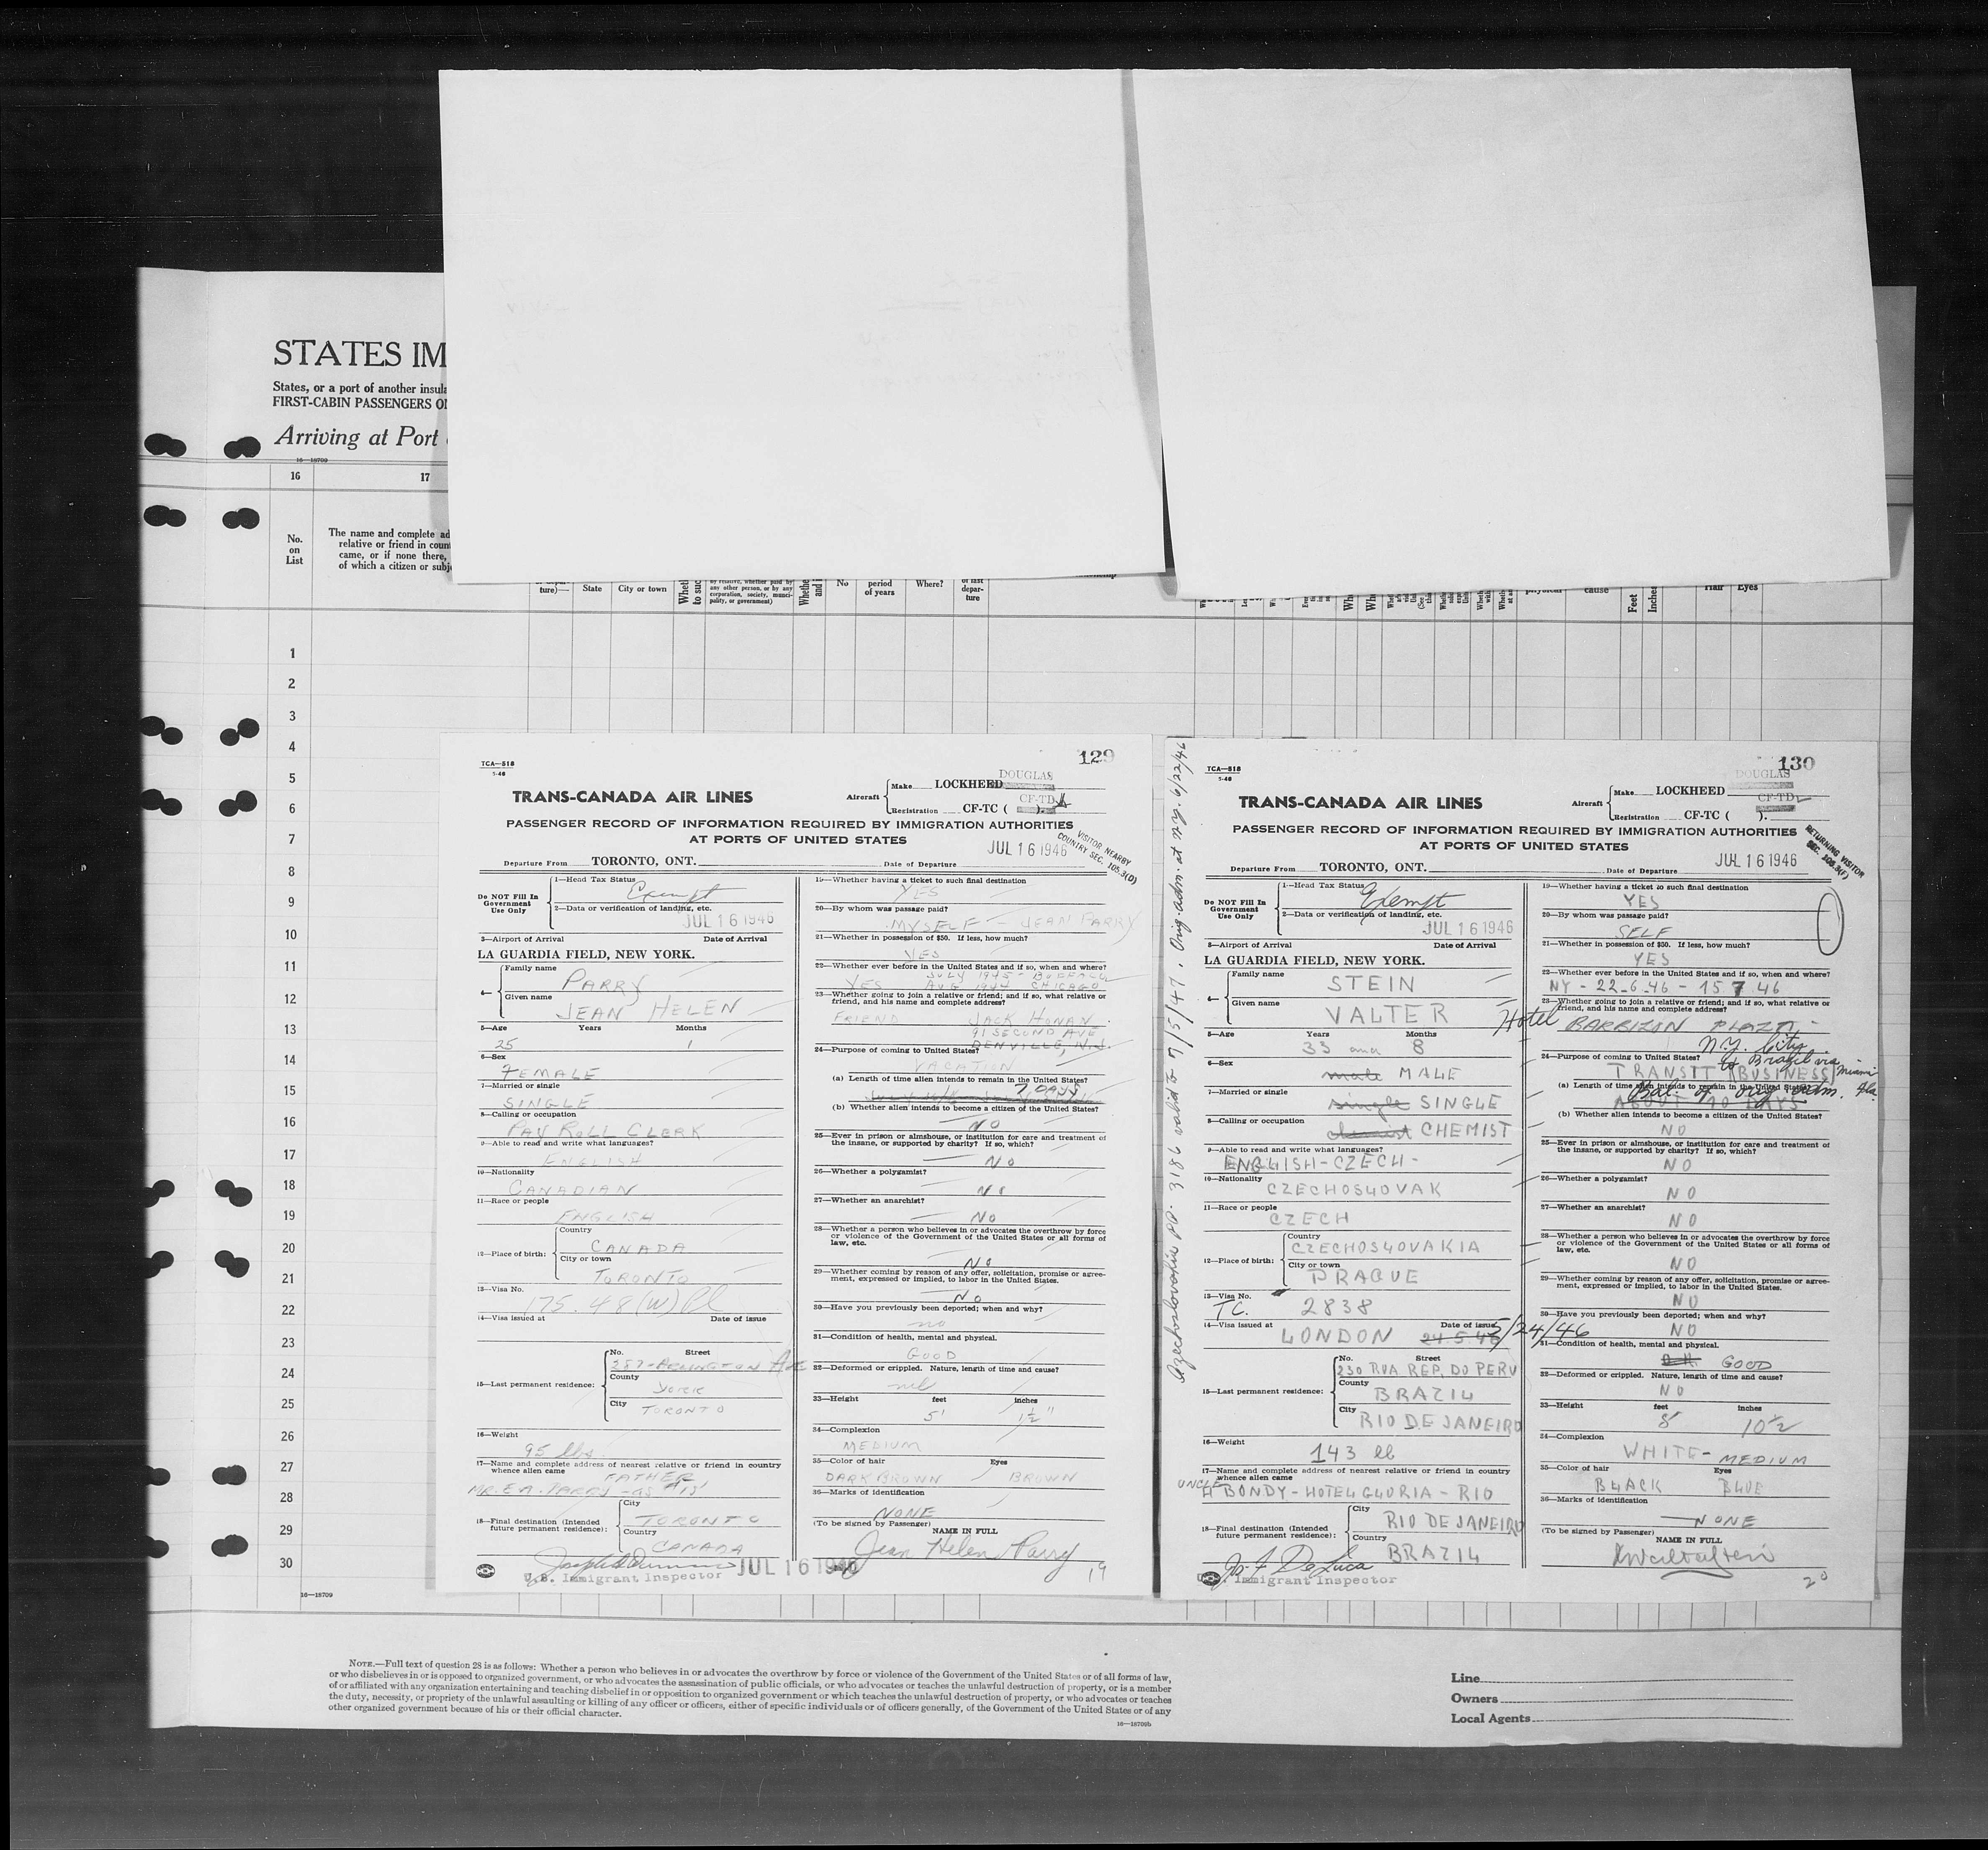 STATES IM
States, or a port of another insula
FIRST-CABIN PASSENGERS O
Arriving at Port
16—18709
16 17
No. on List
The name and complete ad
relative or friend in coun
came, or if none there,
of which a citizen or subj
ture)—
State
City or town
by relative, whether paid by
any other person, or by any
corporation, society, munci-
pality, or government)
No
period
of years
Where?
of last
depar-
ture
cause
Feet
Inches
Hair
Eyes
1
2
3
4
5
6
7
8
9
10
11
12
13
14
15
16
17
18
19
20
21
22
23
24
25
26
27
28
29
30
16—18709
129
TCA—518
1-46
DOUGLAS
Make LOCKHEED
TRANS-CANADA AIR LINES
Aircraft
CF-TD
Registration CF-TC ( ).
PASSENGER RECORD OF INFORMATION REQUIRED BY IMMIGRATION AUTHORITIES
AT PORTS OF UNITED STATES
JUL 16 1946
VISITOR NEARBY
COUNTRY SEC. 105.3(D)
Departure From TORONTO, ONT. Date of Departure
Do NOT Fill In
Government
Use Only
1—Head Tax Status Exempt
2—Data or verification of landing, etc.
JUL 16 1946
3—Airport of Arrival Date of Arrival
LA GUARDIA FIELD, NEW YORK.
4— Family name
PARRY
Given name
JEAN HELEN
5—Age Years Months
25 1
6—Sex
FEMALE
7—Married or single
SINGLE
8—Calling or occupation
PAY ROLL CLERK
9—Able to read and write what languages?
ENGLISH
10—Nationality
CANADIAN
11—Race or people
ENGLISH
12—Place of birth: Country
CANADA
City or town
TORONTO
13—Visa No.
175.48(W)
14—Visa issued at Date of issue
15—Last permanent residence: No. Street
287-ARLINGTON AVE
County
YORK
City
TORONTO
16—Weight
95 lbs.
17—Name and complete address of nearest relative or friend in country
whence alien came FATHER
MR. E.A. PARRY - as #15
18—Final destination (Intended
future permanent residence): City
TORONTO
Country
CANADA
U.S. Immigrant Inspector JUL 16 1946
19—Whether having a ticket to such final destination
YES
20—By whom was passage paid?
MYSELF — JEAN PARRY
21—Whether in possession of $50. If less, how much?
YES
22—Whether ever before in the United States and if so, when and where?
JULY 1945 - BUFFALO
YES AUG 1944 CHICAGO
23—Whether going to join a relative or friend; and if so, what relative or
friend, and his name and complete address?
FRIEND JACK HONAN
91 SECOND AVE
DENVILLE, N.J.
24—Purpose of coming to United States?
VACATION
(a) Length of time alien intends to remain in the United States?
7 DAYS
(b) Whether alien intends to become a citizen of the United States?
NO
25—Ever in prison or almshouse, or institution for care and treatment of
the insane, or supported by charity? If so, which?
NO
26—Whether a polygamist?
NO
27—Whether an anarchist?
NO
28—Whether a person who believes in or advocates the overthrow by force
or violence of the Government of the United States or all forms of
law, etc.
NO
29—Whether coming by reason of any offer, solicitation, promise or agree-
ment, expressed or implied, to labor in the United States.
NO
30—Have you previously been deported; when and why?
no
31—Condition of health, mental and physical.
GOOD
32—Deformed or crippled. Nature, length of time and cause?
nil
33—Height feet inches
5' 1½"
34—Complexion
MEDIUM
35—Color of hair Eyes
DARK BROWN BROWN
36—Marks of identification
NONE
(To be signed by Passenger) NAME IN FULL
Jean Helen Parry
19
Czechoslovakia PP. 3186 valid to 7/5/47. Orig. adm. at N.Y. 6/22/46
130
TCA—518
1-46
DOUGLAS
Make LOCKHEED
TRANS-CANADA AIR LINES
Aircraft
CF-TD
Registration CF-TC ( ).
PASSENGER RECORD OF INFORMATION REQUIRED BY IMMIGRATION AUTHORITIES
AT PORTS OF UNITED STATES
JUL 16 1946
RETURNING VISITOR
SEC. 105.3(F)
Departure From TORONTO, ONT. Date of Departure
Do NOT Fill In
Government
Use Only
1—Head Tax Status Exempt
2—Data or verification of landing, etc.
JUL 16 1946
3—Airport of Arrival Date of Arrival
LA GUARDIA FIELD, NEW YORK.
4— Family name
STEIN
Given name
VALTER
5—Age Years Months
33 and 8
6—Sex
male MALE
7—Married or single
single SINGLE
8—Calling or occupation
chemist CHEMIST
9—Able to read and write what languages?
ENGLISH-CZECH-
10—Nationality
CZECHOSLOVAK
11—Race or people
CZECH
12—Place of birth: Country
CZECHOSLOVAKIA
City or town
PRAGUE
13—Visa No.
T.C. 2838
14—Visa issued at Date of issue
LONDON 24.5.46 5/24/46
15—Last permanent residence: No. Street
230 RUA REP. DO PERU
County
BRAZIL
City
RIO DE JANEIRO
16—Weight
143 lb
17—Name and complete address of nearest relative or friend in country
whence alien came
UNCLE
H BONDY-HOTEL GLORIA-RIO
18—Final destination (Intended
future permanent residence): City
RIO DE JANEIRO
Country
BRAZIL
Jos. F. DeLuca
U.S. Immigrant Inspector
19—Whether having a ticket to such final destination
YES
20—By whom was passage paid?
SELF
21—Whether in possession of $50. If less, how much?
YES
22—Whether ever before in the United States and if so, when and where?
NY - 22.6.46 - 15 7.46
23—Whether going to join a relative or friend; and if so, what relative or
friend, and his name and complete address?
Hotel BARBIZON PLAZA,
N.Y. City
24—Purpose of coming to United States? to Brazil via Miami
TRANSIT (BUSINESS) Fla.
(a) Length of time alien intends to remain in the United States?
Bal. of orig. adm.
ABOUT 10 DAYS
(b) Whether alien intends to become a citizen of the United States?
NO
25—Ever in prison or almshouse, or institution for care and treatment of
the insane, or supported by charity? If so, which?
NO
26—Whether a polygamist?
NO
27—Whether an anarchist?
NO
28—Whether a person who believes in or advocates the overthrow by force
or violence of the Government of the United States or all forms of
law, etc.
NO
29—Whether coming by reason of any offer, solicitation, promise or agree-
ment, expressed or implied, to labor in the United States.
NO
30—Have you previously been deported; when and why?
NO
31—Condition of health, mental and physical.
GOOD
32—Deformed or crippled. Nature, length of time and cause?
NO
33—Height feet inches
5' 10½
34—Complexion
WHITE- MEDIUM
35—Color of hair Eyes
BLACK BLUE
36—Marks of identification
NONE
(To be signed by Passenger) NAME IN FULL
20
NOTE.—Full text of question 28 is as follows: Whether a person who believes in or advocates the overthrow by force or violence of the Government of the United States or of all forms of law,
or who disbelieves in or is opposed to organized government, or who advocates the assassination of public officials, or who advocates or teaches the unlawful destruction of property, or is a member
of or affiliated with any organization entertaining and teaching disbelief in or opposition to organized government or which teaches the unlawful destruction of property, or who advocates or teaches
the duty, necessity, or propriety of the unlawful assaulting or killing of any officer or officers, either of specific individuals or of officers generally, of the Government of the United States or of any
other organized government because of his or their official character.
16—18709b
Line
Owners
Local Agents